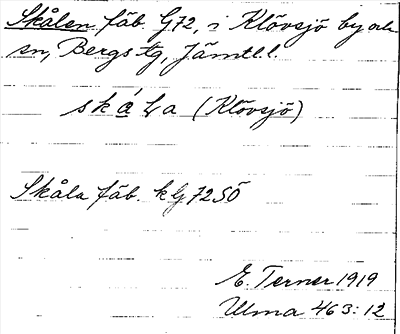 Skålen fäb. G72, i Klövsjö by och
sn, Bergs tg, Jämtl. l.
skála (Klövsjö)
Skåla fäb. kG 72 SÖ
E. Terner 1919
Ulma 463:12